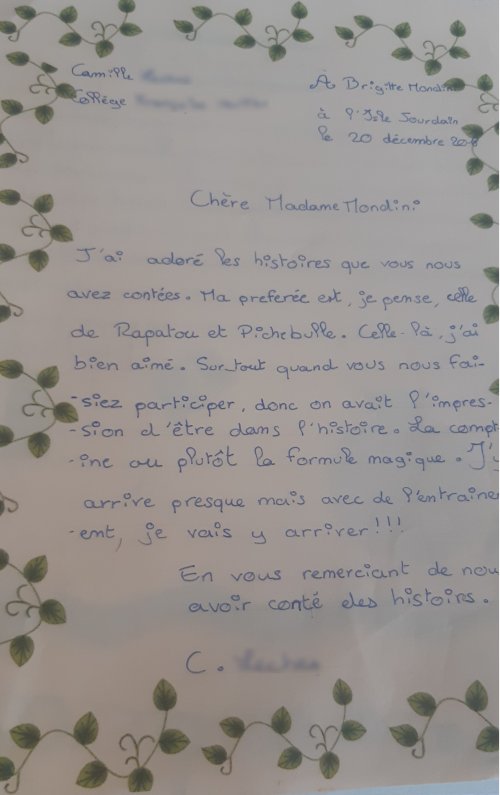 Camille
Collège
À Brigitte Mondini
à l'Isle Jourdain
le 20 décembre
Chère Madame Mondini
J'ai adoré les histoires que vous nous
avez contées. Ma preferée est, je pense, celle
de Rapatou et Pichebulle. Celle-là, j'ai
bien aimé. Surtout quand vous nous fai-
-siez participer, donc on avait l'impres-
-sion d'être dans l'histoire. La compt
-ine ou plutôt la formule magique. J'y
arrive presque mais avec de l'entrainem
-ent, je vais y arriver!!!
En vous remerciant de nou
avoir conté des histoirs.
C.